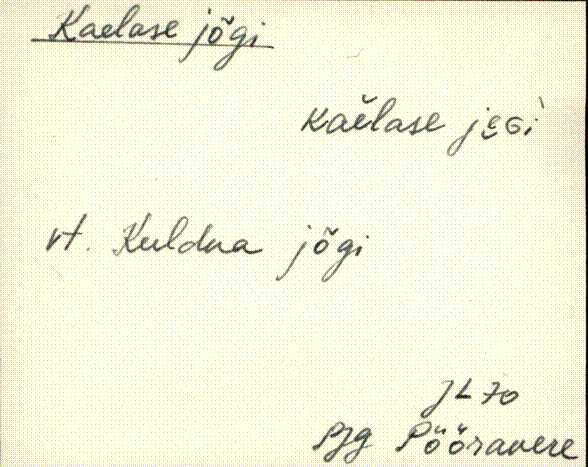 Kaelase jõgi
kaĕlase je̮Gi`
vt. Kuldna jõgi
JL 70
PJg Pööravere